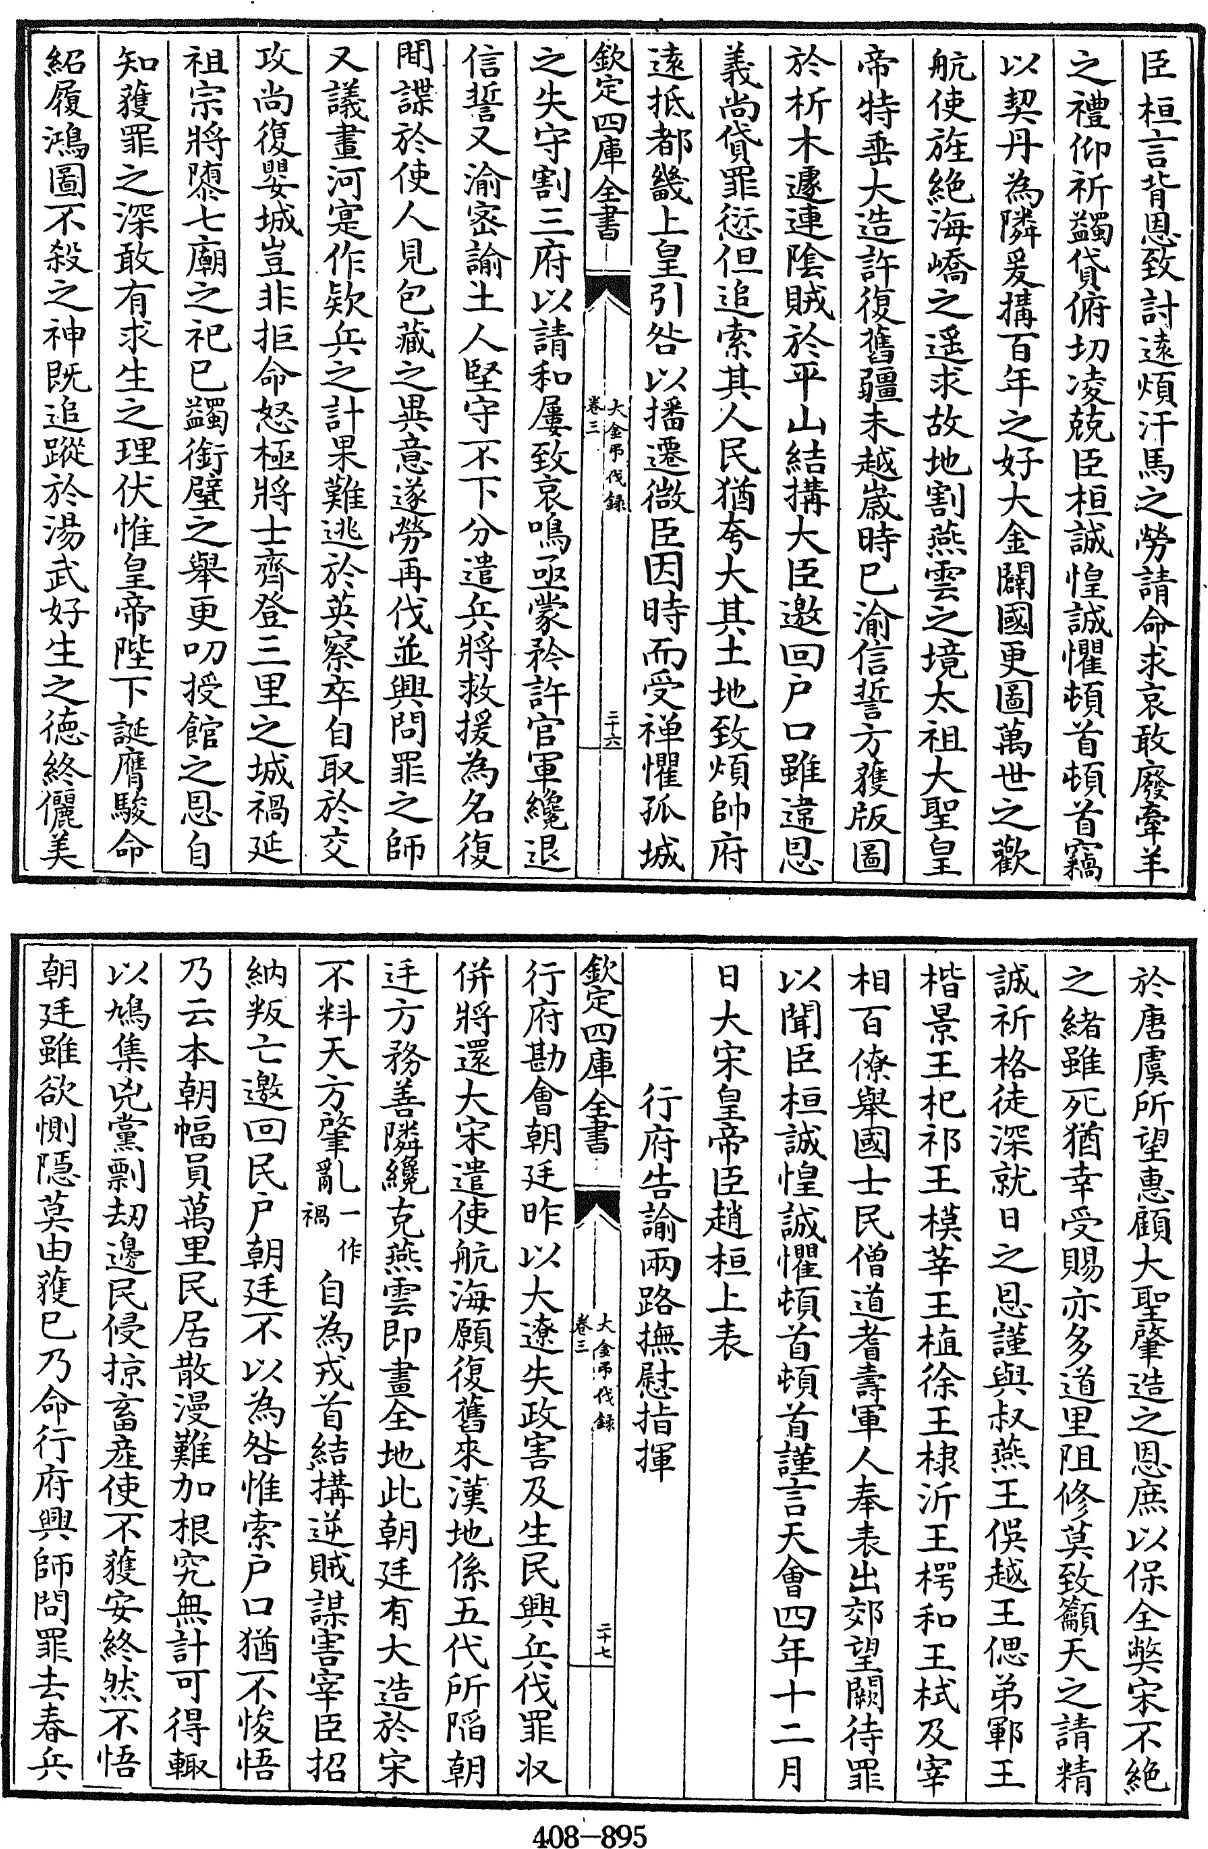 臣桓言背恩致討遠煩汗馬之勞請命求哀敢廢牽羊
之禮仰祈蠲貸俯切凌兢臣桓誠惶誠懼頓首頓首竊
以契丹為隣爰搆百年之好大金闢國更圖萬世之歡
航使旌絶海嶠之遥求故地割燕雲之境太祖大聖皇
帝特垂大造許復舊疆未越歲時已渝信誓方獲版圖
於析木遽連隂賊於平山結搆大臣邀回户口雖違恩
義尚貸罪愆但追索其人民猶夸大其土地致煩帥府
遠抵都畿上皇引咎以播遷微臣因時而受禪懼孤城
欽定四庫全書
大金弔伐録
卷三
三十六
之失守割三府以請和屢致哀鳴亟蒙矜許官軍纔退
信誓又渝密諭土人堅守不下分遣兵將救援為名復
間諜於使人見包藏之異意遂勞再伐並興問罪之師
又議畫河寔作欵兵之計果難逃於英察卒自取於交
攻尚復嬰城豈非拒命怒極將士齊登三里之城禍延
祖宗將隳七廟之祀已蠲銜璧之舉更叨授館之恩自
知獲罪之深敢有求生之理伏惟皇帝陛下誕膺駿命
紹履鴻圖不殺之神既追蹤於湯武好生之德終儷美
於唐虞所望惠顧大聖肇造之恩庶以保全弊宋不絶
之緒雖死猶幸受賜亦多道里阻修莫致籲天之請精
誠祈格徒深就日之思謹與叔燕王俁越王偲弟鄆王
楷景王杞祁王模莘王植徐王棣沂王㮙和王栻及宰
相百僚舉國士民僧道耆壽軍人奉表出郊望闕待罪
以聞臣桓誠惶誠懼頓首頓首謹言天會四年十二月
日大宋皇帝臣趙桓上表
行府告諭兩路撫慰指揮
欽定四庫全書
大金弔伐録
卷三
三十七
行府勘會朝廷昨以大遼失政害及生民興兵伐罪収
併將還大宋遣使航海願復舊來漢地係五代所陷朝
廷方務善隣纔克燕雲即畫全地此朝廷有大造於宋
不料天方肇亂一作禍自為戎首結搆逆賊謀害宰臣招
納叛亡邀回民户朝廷不以為咎惟索户口猶不悛悟
乃云本朝幅員萬里民居散漫難加根究無計可得輙
以鳩集兇黨剽刼邊民侵掠畜産使不獲安終然不悟
朝廷雖欲惻隐莫由獲已乃命行府興師問罪去春兵
408-895